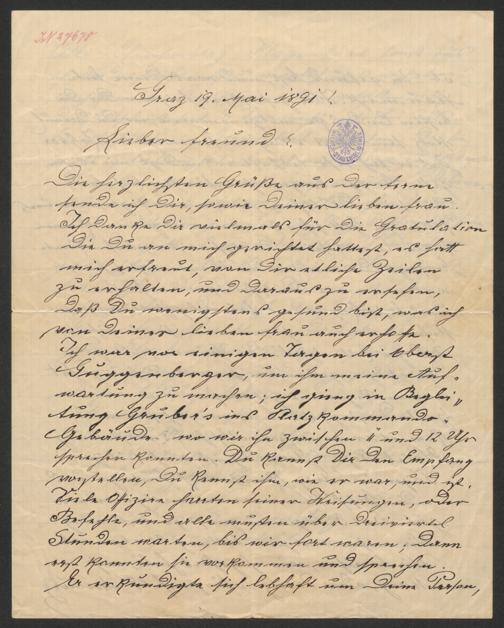 IN 27678
Graz 19. Mai 1891!
Lieber Freund!
Die herzlichsten Grüße aus der Ferne
sende ich Dir, sowie Deiner lieben Frau.
Ich danke Dir vielmals für die Gratulation
die Du an mich gerichtet hattest, es hatt
mich erfreut, von Dir etliche Zeilen
zu erhalten, und daraus zu ersehen,
daß Du wenigstens gesund bist, was ich
von Deiner lieben Frau auch erhoffe.
Ich war vor einigen Tagen bei Oberst
Guggenberger, um ihm meine Auf-
wartung zu machen; ich gieng in Beglei„
tung Gruber's ins Platzkommando-
Gebäude wo wir ihn zwischen 11 und 12 Uhr
sprechen konnten. Du kannst Dir den Empfang
vorstellen, Du kennst ihn, wie er war, und ist.
Viele Ofizire harrten seiner Weisungen, oder
Befehle, und alle mußten über dreiviertel
Stunden warten, bis wir fort waren; dann
erst konnten sie vorkommen und sprechen.
Er erkundigte sich lebhaft um Deine Person,